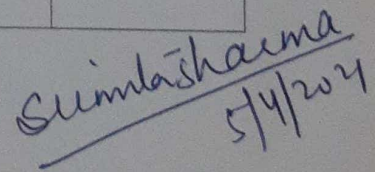 Suimlasharma
5/4/2021